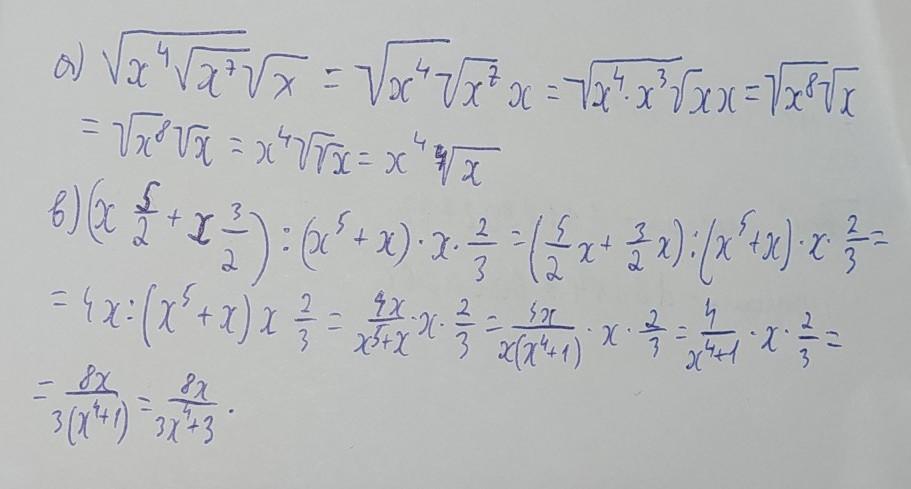 а) √(x⁴√(x⁷))√x = √(x⁴)√(x⁷)x = √(x⁴·x³)√xx = √(x⁸)√x
= √x⁸√x = x⁴√√x = x⁴ ⁴√x
в) (x 5/2 + x 3/2) : (x⁵ + x) · x · 2/3 = (5/2 x + 3/2 x) : (x⁵ + x) · x · 2/3 =
= 4x : (x⁵ + x) x 2/3 = 4x/(x⁵+x) · x · 2/3 = 4x/(x(x⁴+1)) · x · 2/3 = 4/(x⁴+1) · x · 2/3 =
= 8x/(3(x⁴+1)) = 8x/(3x⁴+3).